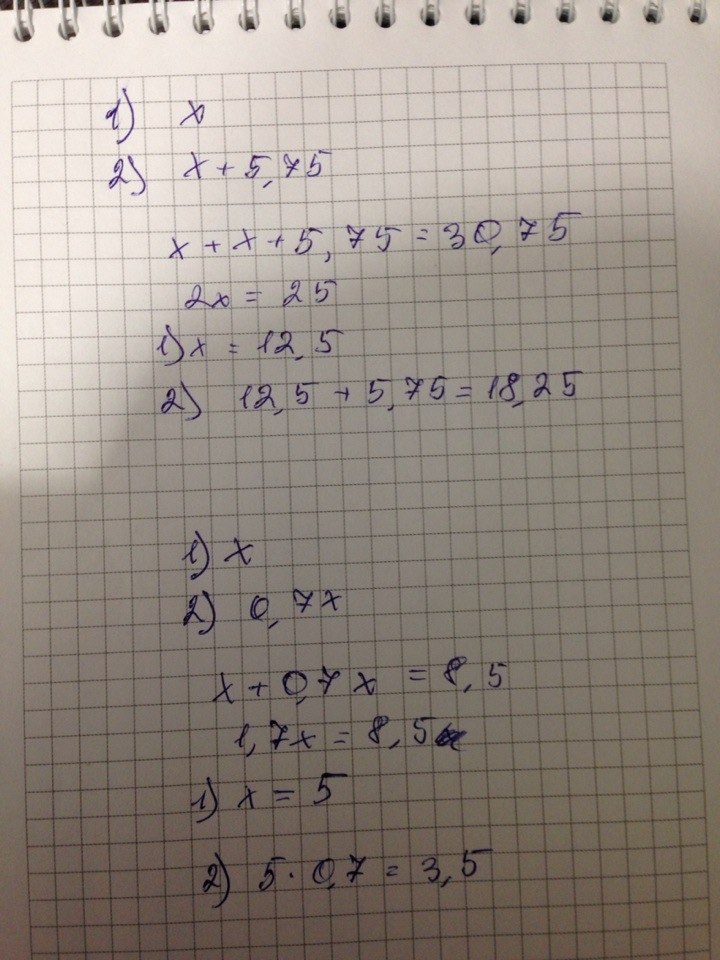 1) x
2) x + 5,75
x + x + 5,75 = 30,75
2x = 25
1) x = 12,5
2) 12,5 + 5,75 = 18,25
1) x
2) 0,7x
x + 0,7x = 8,5
1,7x = 8,5
1) x = 5
2) 5 · 0,7 = 3,5